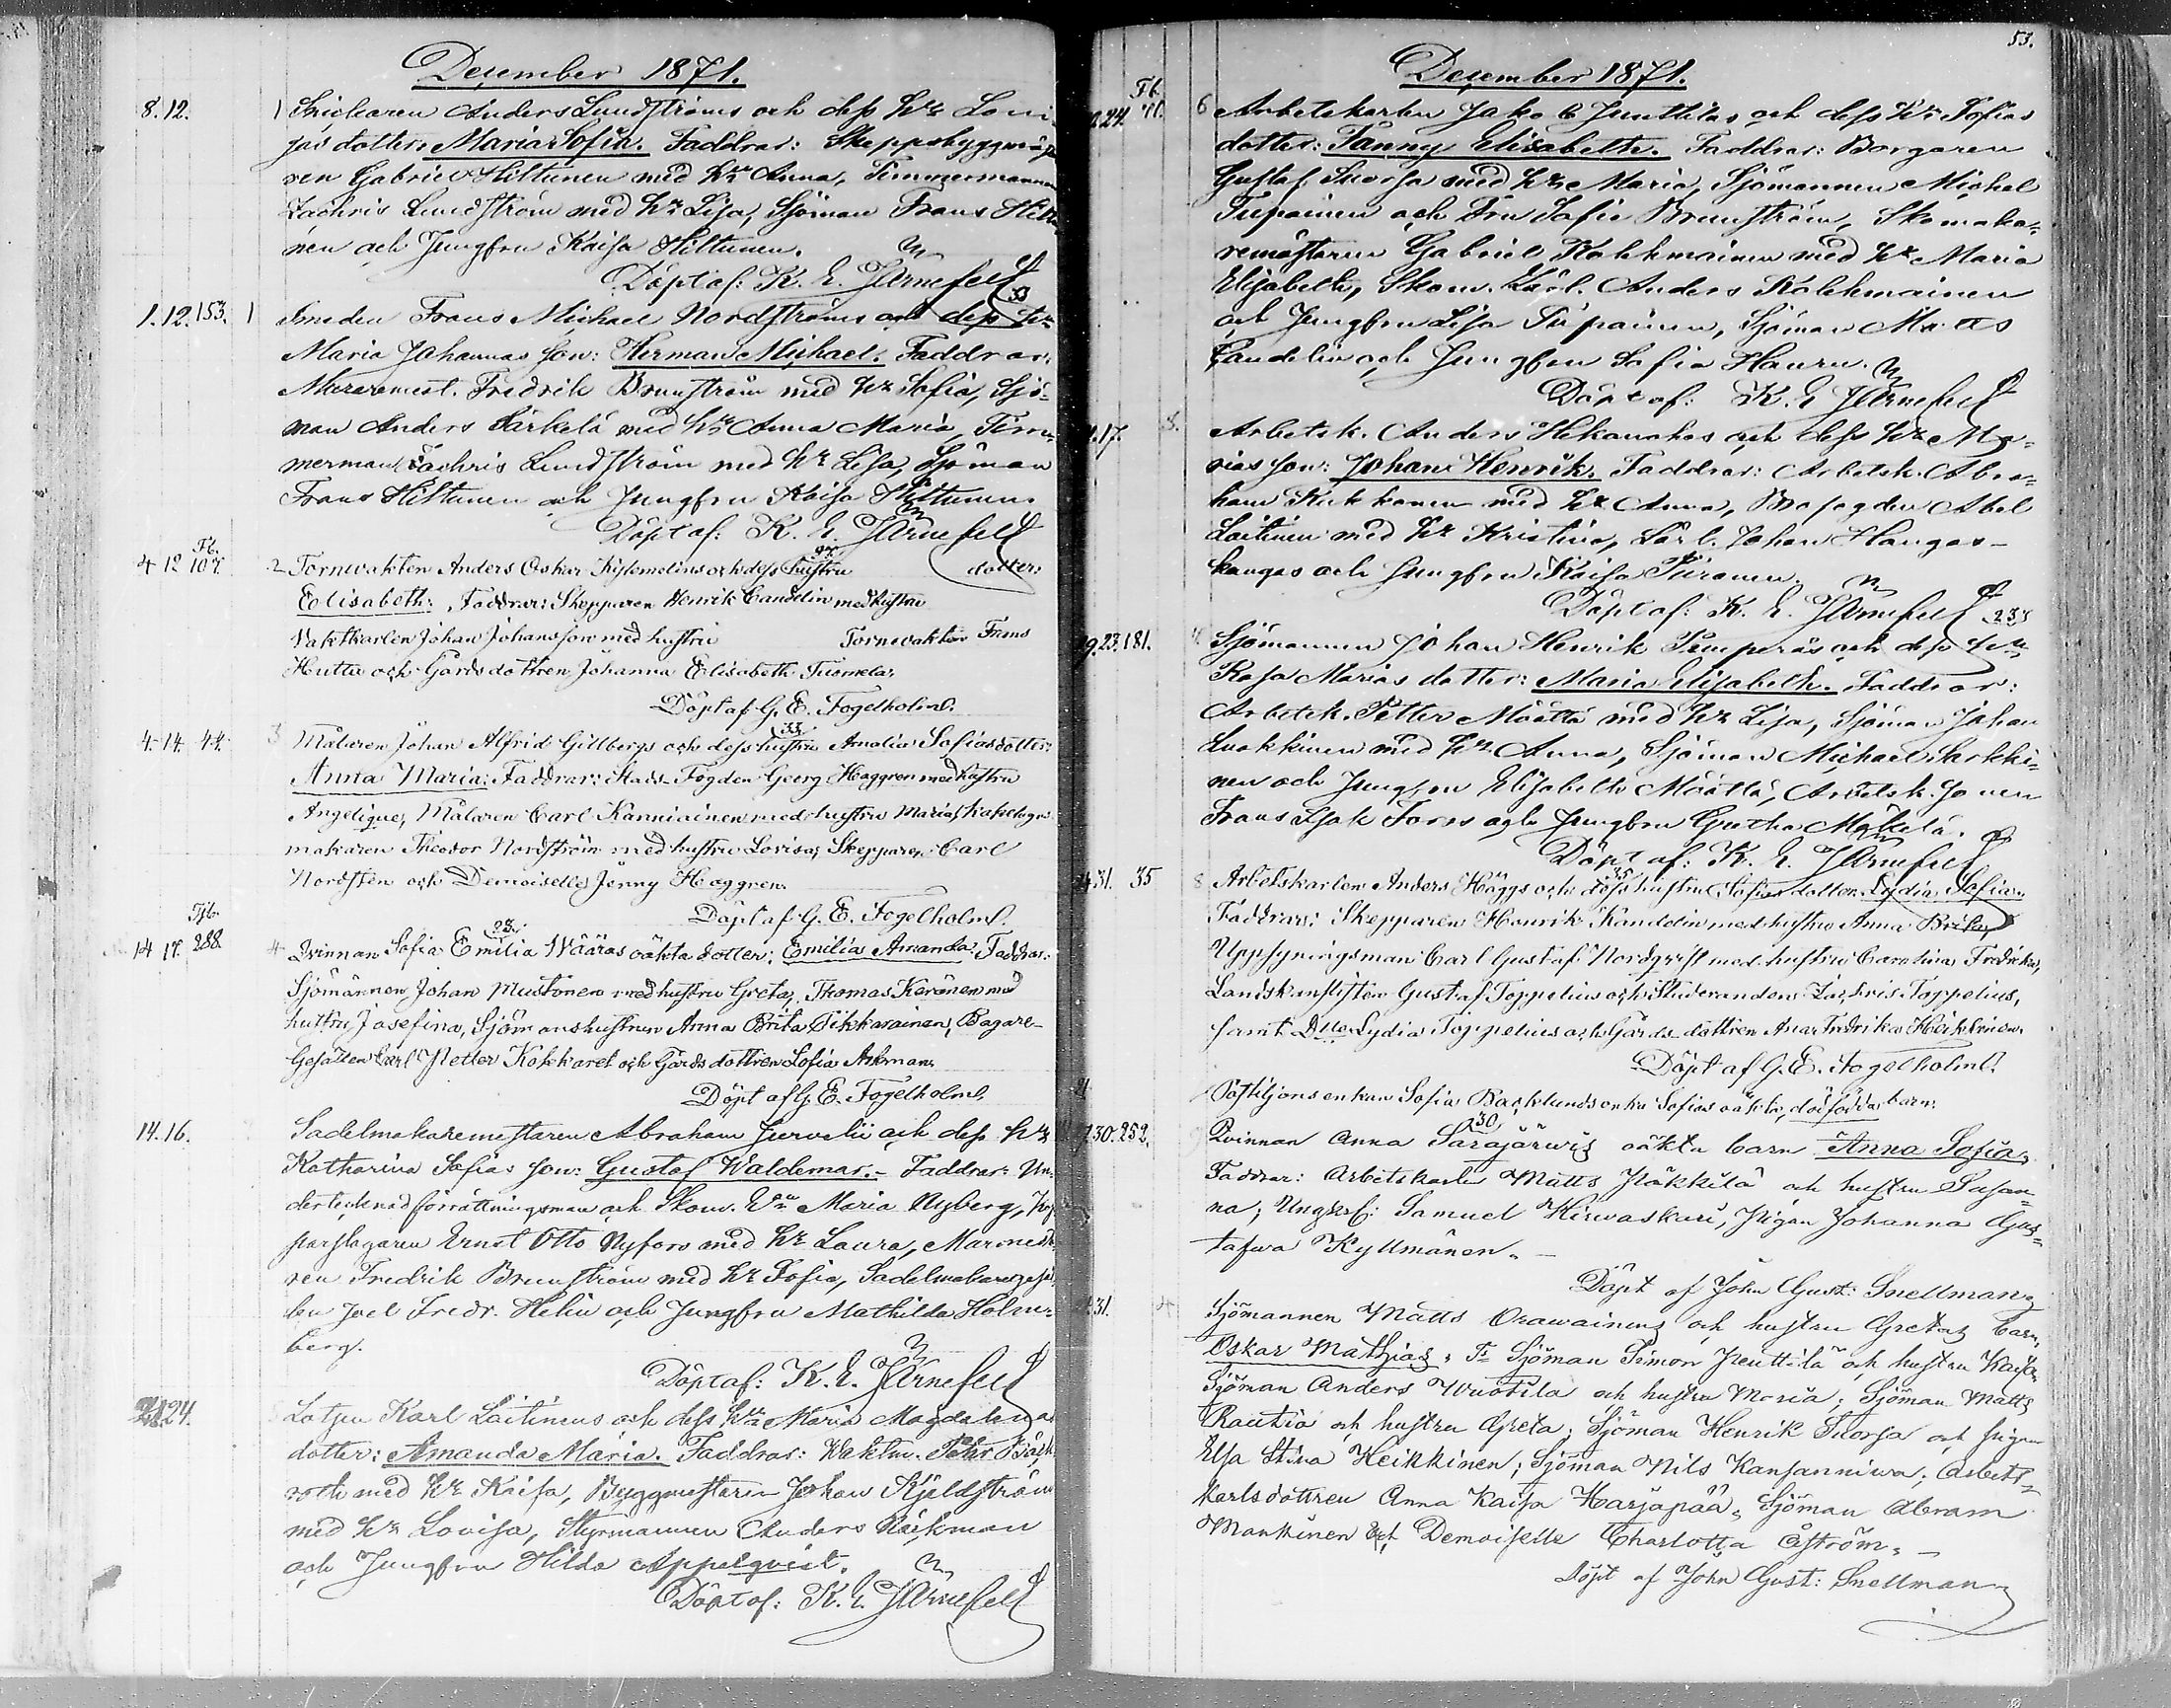 December 1871.
8. 12. 1 Snickaren Anders Lundströms och dess Hu Lovi
sas dotter: Maria Sofia. Faddrar: Skeppsbyggmäs
ren Gabriel Hiltunen med Hu Anna, Timmermannen
Zachris Lundström med Hu Lisa, Sjöman Frans Hiltu
nen och Jungfru Kaisa Hiltunen.
Döpt af: K. E. Järnefelt
1. 12. 153. 1 Smeden Frans Michael Nordströms och dess Hu
Maria Johannas son: Herman Michael. Faddrar:
Muraremest. Fredrik Brunström med Hu Sofia, Sjö-
man Anders Särkelä med Hu Anna Maria, Tim-
merman Zachris Lundström med Hu Lisa, Sjöman
Frans Hiltunen och Jungfru Kaisa Hiltunen.
Döpt af: K. E. Järnefelt
Fb.
4 12 107. 2 Tornvakten Anders Oskar och dess hustru dotter:
Elisabeth: Faddrar: Skepparen Henrik Candelin med hustru
Vaktkarlen Johan Johansson med hustru Tornvakten Frans
Huttu och Gårdsdottren Johanna Elisabeth Tuomela.
Döpt af G. E. Fogelholm.
33
4. 14. 44. 3 Målaren Johan Alfrid Gillbergs och dess hustru Amalia Sofias dotter:
Anna Maria: Faddrar: Stads-Fogden Georg Häggren med hustru
Angelique, Målaren Carl Kanniainen med hustru Maria, Kakelugns
makaren Theodor Nordström med hustru Lovisa, Skepparen Carl
Nordsten och Demoiselle Jenny Häggren.
Döpt af G. E. Fogelholm.
23.
14 17. 288. 4 Qvinnan Sofia Emilia Wääräs oäkta dotter: Emilia Amanda: Faddrar:
Sjömännen Johan Mustonen med hustru Greta, Thomas Keränen med
hustru Josefina, Sjömanshustrun Anna Brita Tikkarainen, Bagare-
Gesällen Carl Petter Kokkaret och Gårdsdottren Sofia Askman.
Döpt af G. E. Fogelholm.
14. 16. Sadelmakaremästaren Abraham Jurvelii och dess Hu
Katharina Sofias son: Gustaf Waldemar.- Faddrar: Un-
dertecknad förrättningsman och Skom. Maria Nyberg, Kop
parslagaren Ernst Otto Nyfors med Hu Laura,
ren Fredrik Brunström med Hu Sofia, Sadelmakaregesäl
len Joel Fredr. Helin och Jungfru Mathilda Holm-
berg.
Döpt af: K. E. Järnefelt
24. Lotsen Karl Laitinens och dess Hu Maria Magdalenas
dotter: Amanda Maria. Faddrar: Waktm. Pehr Bäck
roth med Hu Kaisa, Byggmästaren Johan Kjäldström
med Hu Lovisa, Styrmannen Anders Räckman
och Jungfru Hilda Appelqvist.
Döpt af: K. E. Järnefelt
53.
December 1871.
Fb.
24. 71. 6 Arbetskarlen Jakob Junttilas och dess Hu Sofias
dotter: Fanny Elisabeth. Faddrar: Borgaren
Gustaf Snorsa med Hu Maria, Sjömannen Michel
Tupainen och Fru Sofie Brunström, Skomaka-
remästaren Gabriel Kolehmainen med Hu Maria
Elisabeth, Skom. Lärl. Anders Kolehmainen
och Jungfru Lisa Tupainen, Sjöman Matts
Candelin och Jungfru Sofia Hauru.
Döpt af: K. E. Järnefelt
17. Arbetsk. Anders Hekanahos och dess Hu Ma-
rias son: Johan Henrik. Faddrar: Arbetsk. Abra-
ham Kukkonen med Hu Anna, Brofogden Abel
Laitinen med Hu Kristina, Lärl. Johan Hangas-
kangas och Jungfru Kaisa Piironen.
Döpt af: K. E. Järnefelt
19. 23. 181. Sjömannen Johan Henrik Pimperäs och dess Hu
Rosa Marias dotter: Maria Elisabeth. Faddrar:
Arbetsk. Petter Määttä med Hu Lisa, Sjöman Johan
Luokkinen med Hu Anna, Sjöman Michael Sarkki-
nen och Jungfru Elisabeth Määttä, Arbetsk. sonen
Frans Isak Fors och Jungfru Gretha Mäkelä.
Döpt af: K. E. Järnefelt
35
31. 35 8 Arbetskarlen Anders Häggs och dess hustru Sofias dotter Lydia Sofia.
Faddrar: Skepparen Henrik Kandelin med hustru Anna Brita,
Uppsyningsman Carl Gustaf Nordqvist med hustru Carolina Fredrika,
Landskanslisten Gustaf Toppelius och Studeranden Zachris Toppelius,
samt Dlle Lydia Toppelius och Gårds-dottren Anna Fredrika Heikkinen.
Döpt af G. E. Fogelholm.
Postiljonsenkan Sofia Backlunds Sofias oäkta, dödfödda barn.
30
30. 252. Qvinnan Anna Sarajärwis oäkta barn Anna Sofia,
Faddrar: Arbetskarlen Matts Jläkkilä och hustru Susan-
na; Ungkrl: Samuel Hirwaskari, Pigan Johanna Gus-
tafwa Kyllmänen. -
Döpt af John Gust: Snellman
31. Sjömannen Matts Orawainens och hustru Gretas barn,
Oskar Mathias; Fr Sjöman Simon Penttilä och hustru Kaisa;
Sjöman Anders Wuotila och hustru Maria; Sjöman Matts
Rautio och hustru Greta; Sjöman Henrik Tuorsa och pigan
Elsa Stina Heikkinen; Sjöman Nils Kansanniwa; Arbets-
karlsdottren Anna Kaisa Harjapää; Sjöman Abram
Mankinen och Demoiselle Charlotta Åström. -
Döpt af John Gust: Snellman